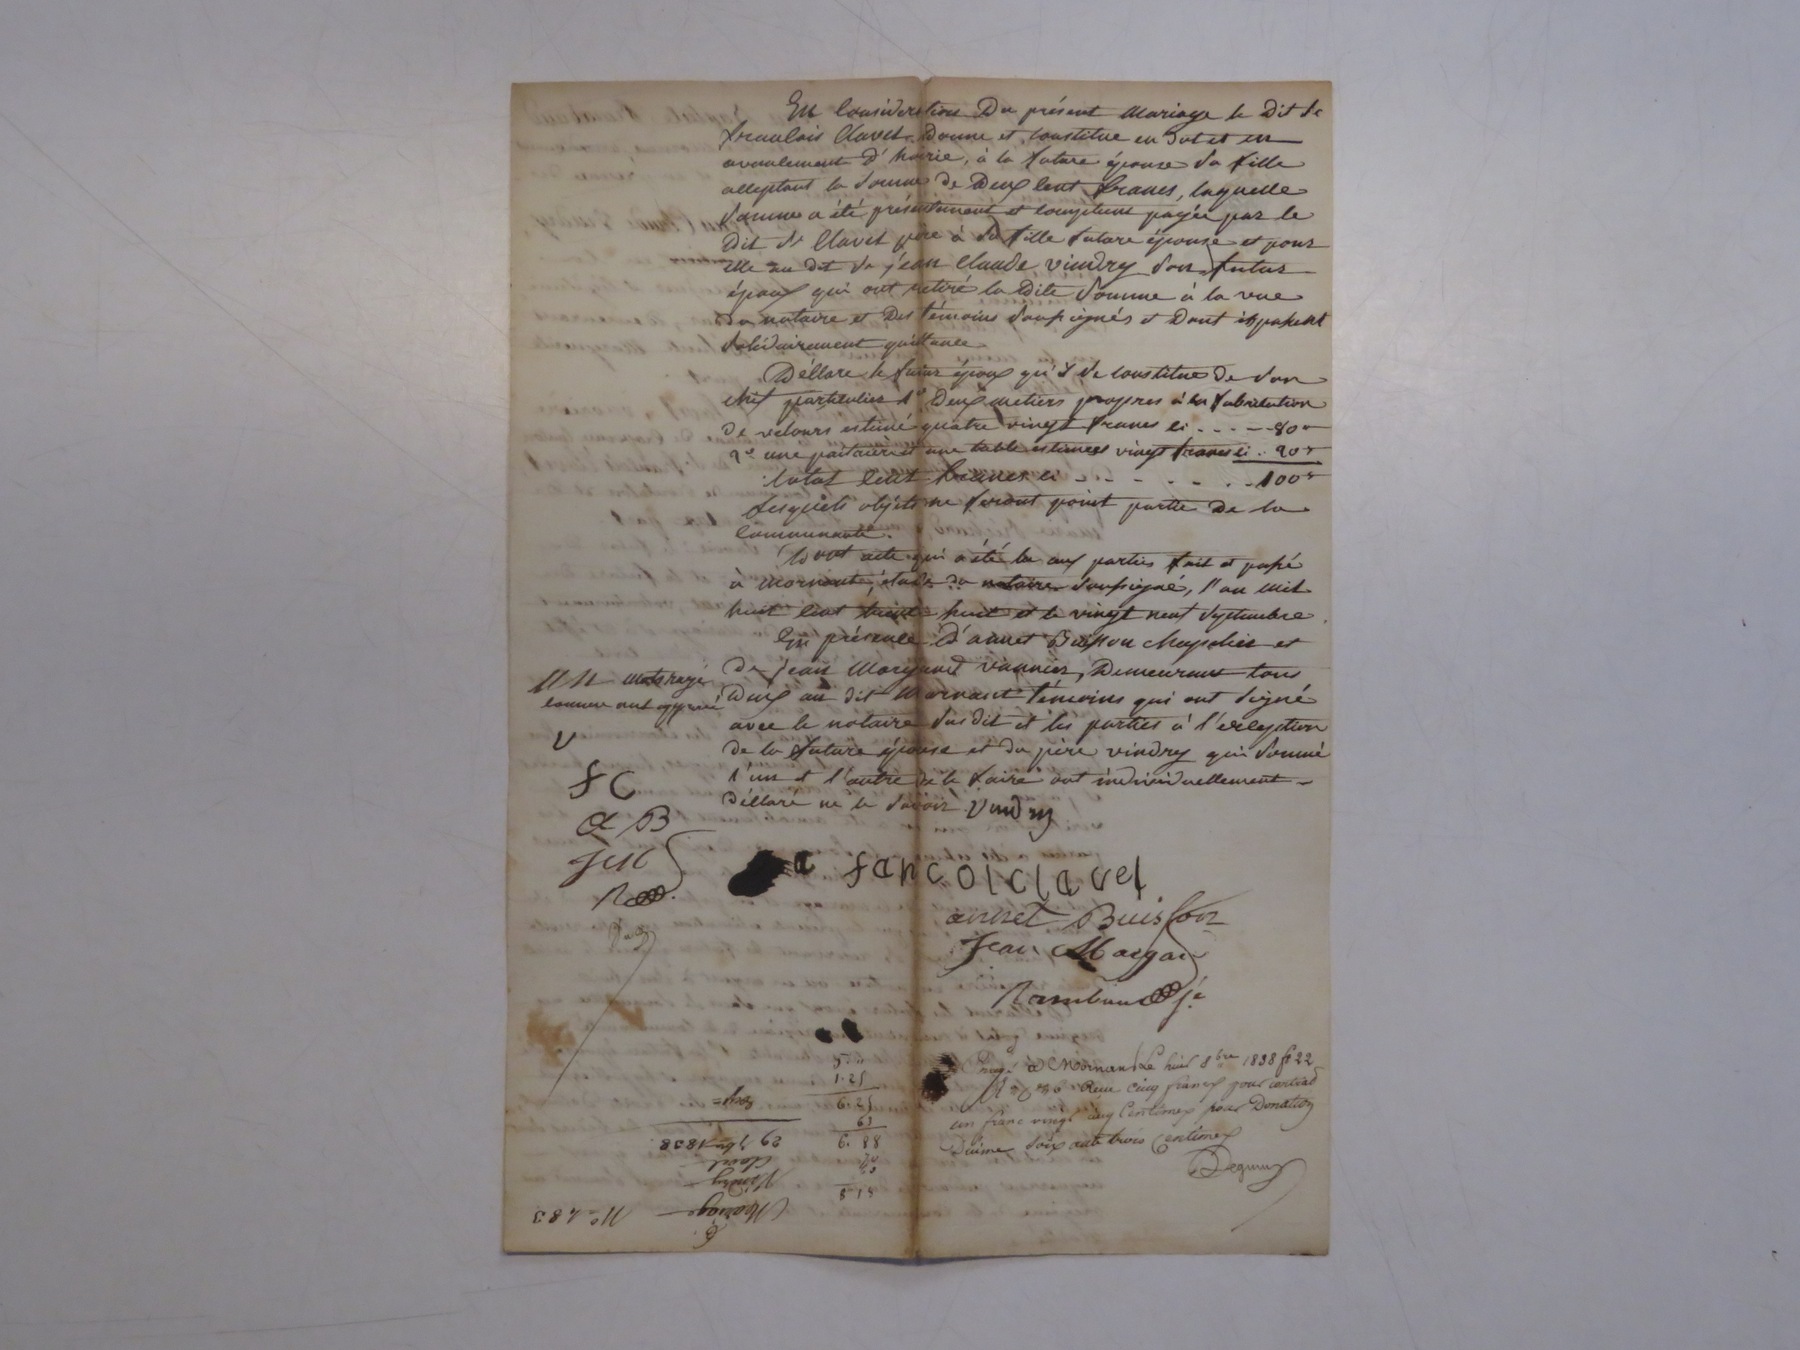 En Considération Du présent Mariage le Dit Sr
francois Clavet Donne et constitue en Dot et en
avancement D'hoirie, à la future épouse Sa fille
acceptant la Somme de Deux Cent francs, laquelle
Somme a été présentement et comptant payée par le
Dit Sr Clavet père à Sa fille future épouse et pour
elle au dit Sr jean Claude Vindry Son futur
époux qui ont retiré la Dite Somme à la vue
Du notaire et Des témoins Soussignés et Dont ils passent
Solidairement quittance
Déclare le futur époux qu'il Se constitue De Son
chef particulier 1° Deux metiers propres à la fabrication
de velours estimé quatre vingt francs ci - - - - 80 "
2° une et une table estimées vingt francs ci . 20 "
total Cent francs ci - - - - - - 100 "
Lesquels objets ne feront point partie De la
Communauté.
Dont acte qui a été lu aux parties fait et passé
à Mornant, étude Du notaire Soussigné, l'an mil
huit Cent trente huit et le vingt neuf Septembre
En présence D'annet Buisson chapelier et
De jean Margand vannier, Demeurant tous
Deux au dit Mornant témoins qui ont Signé
avec le notaire Susdit et les parties à l'exception
de la future épouse et du père vindry qui Sommé
l'un et l'autre de le faire ont individuellement
Déclaré ne le Savoir Vindry
mots rayé
comme nul approuvé
V
f C
a B
J M
R
a fancoiclavet
annet Buisson
Jean Margan
Rambaud je
Engé à Mornant Le huit 8bre 1838 fo 22
Reçu cinq francs pour contrat
un franc vingt cinq Centimes pour Donation
Dixme Soixante trois Centimes
Deguin
1.25
6.25
63
6.88
8 14
Exp =
29 7bre 1838
Clavet
Vindry
Mariage
N° 483